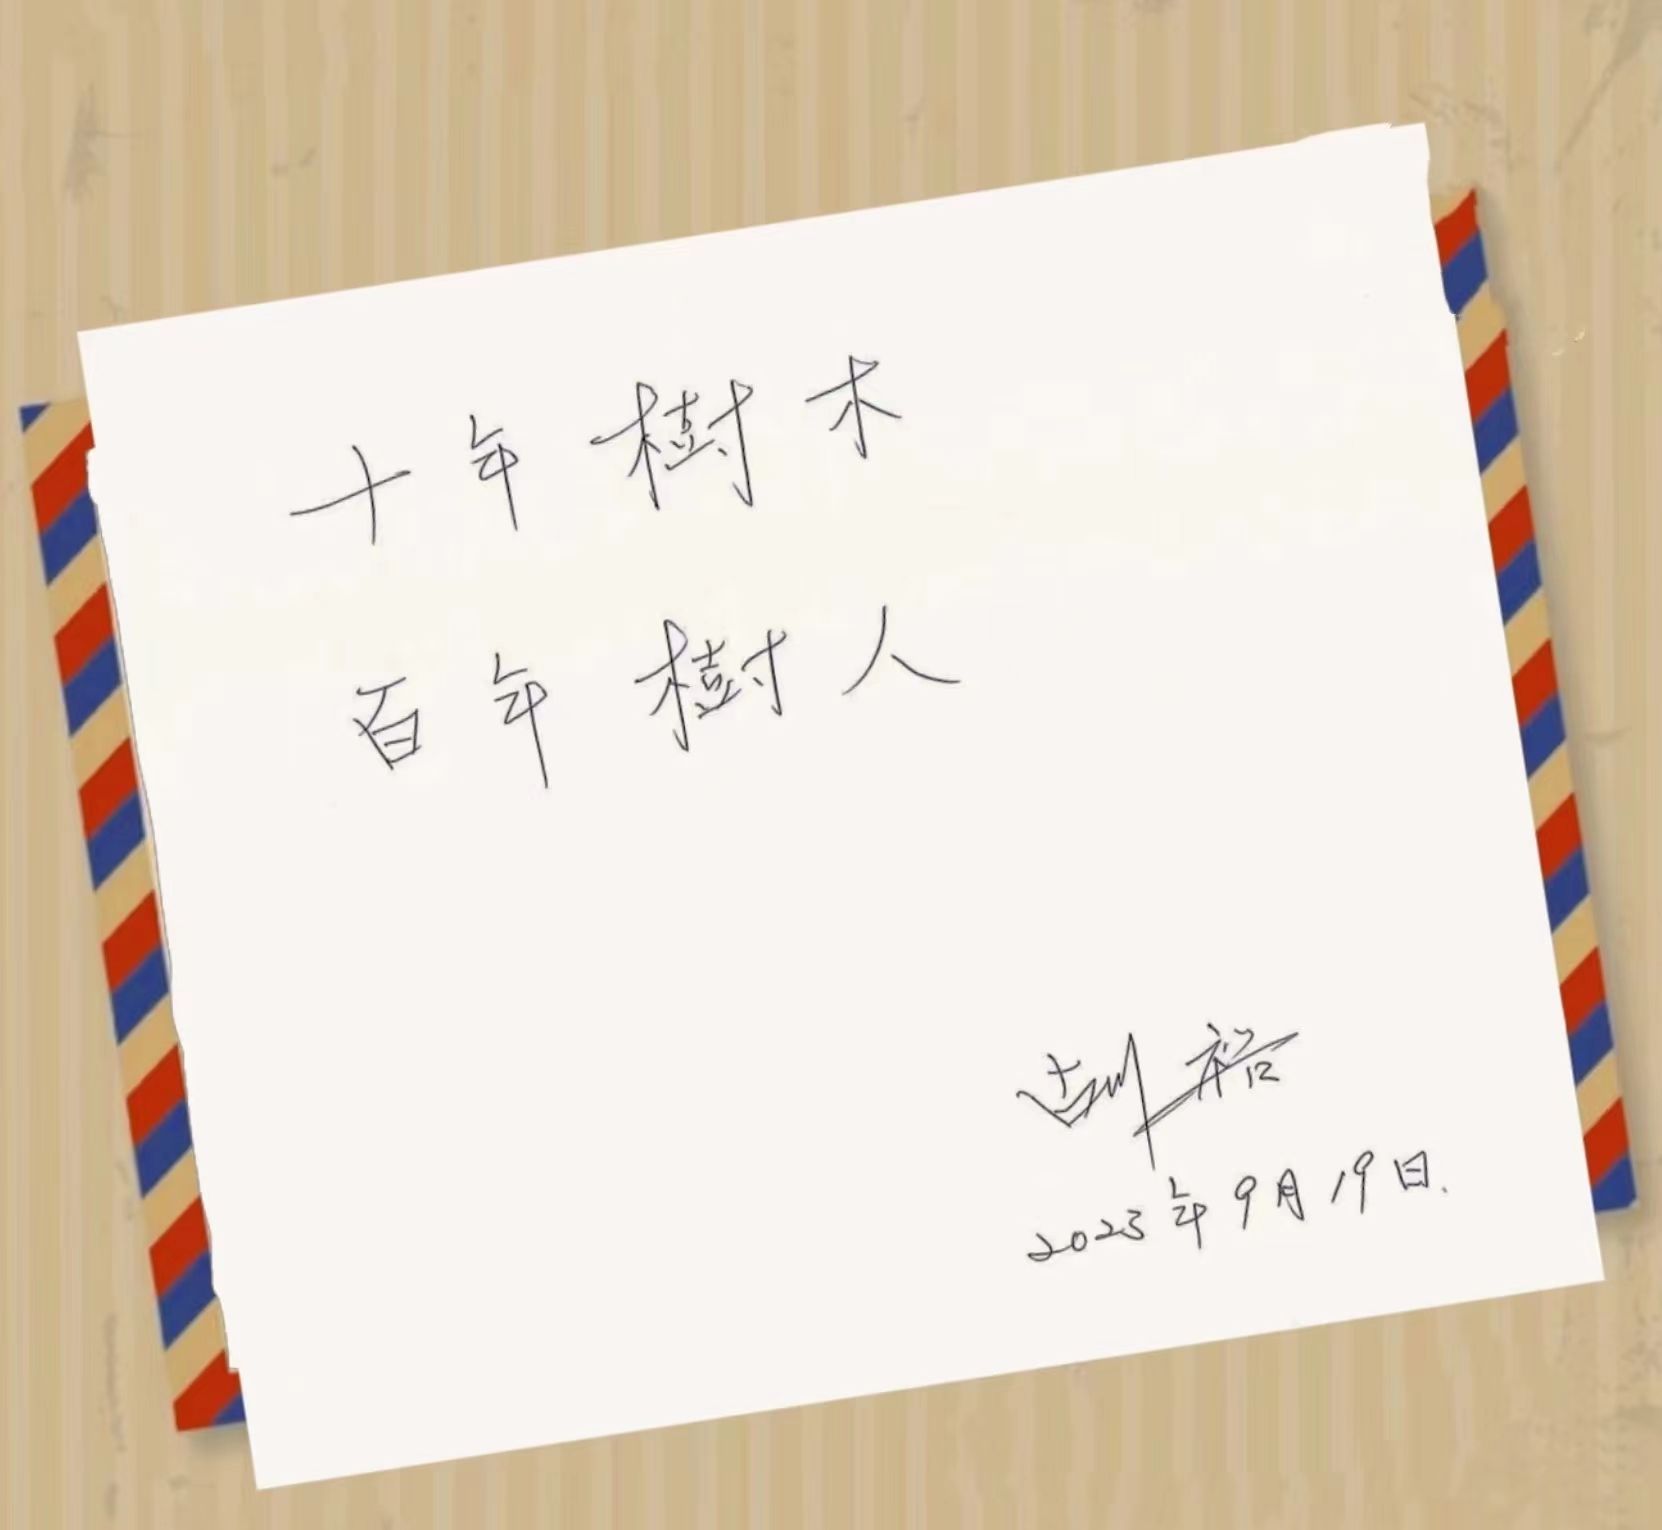 十年樹木
百年樹人
胡裕
2023年9月19日.